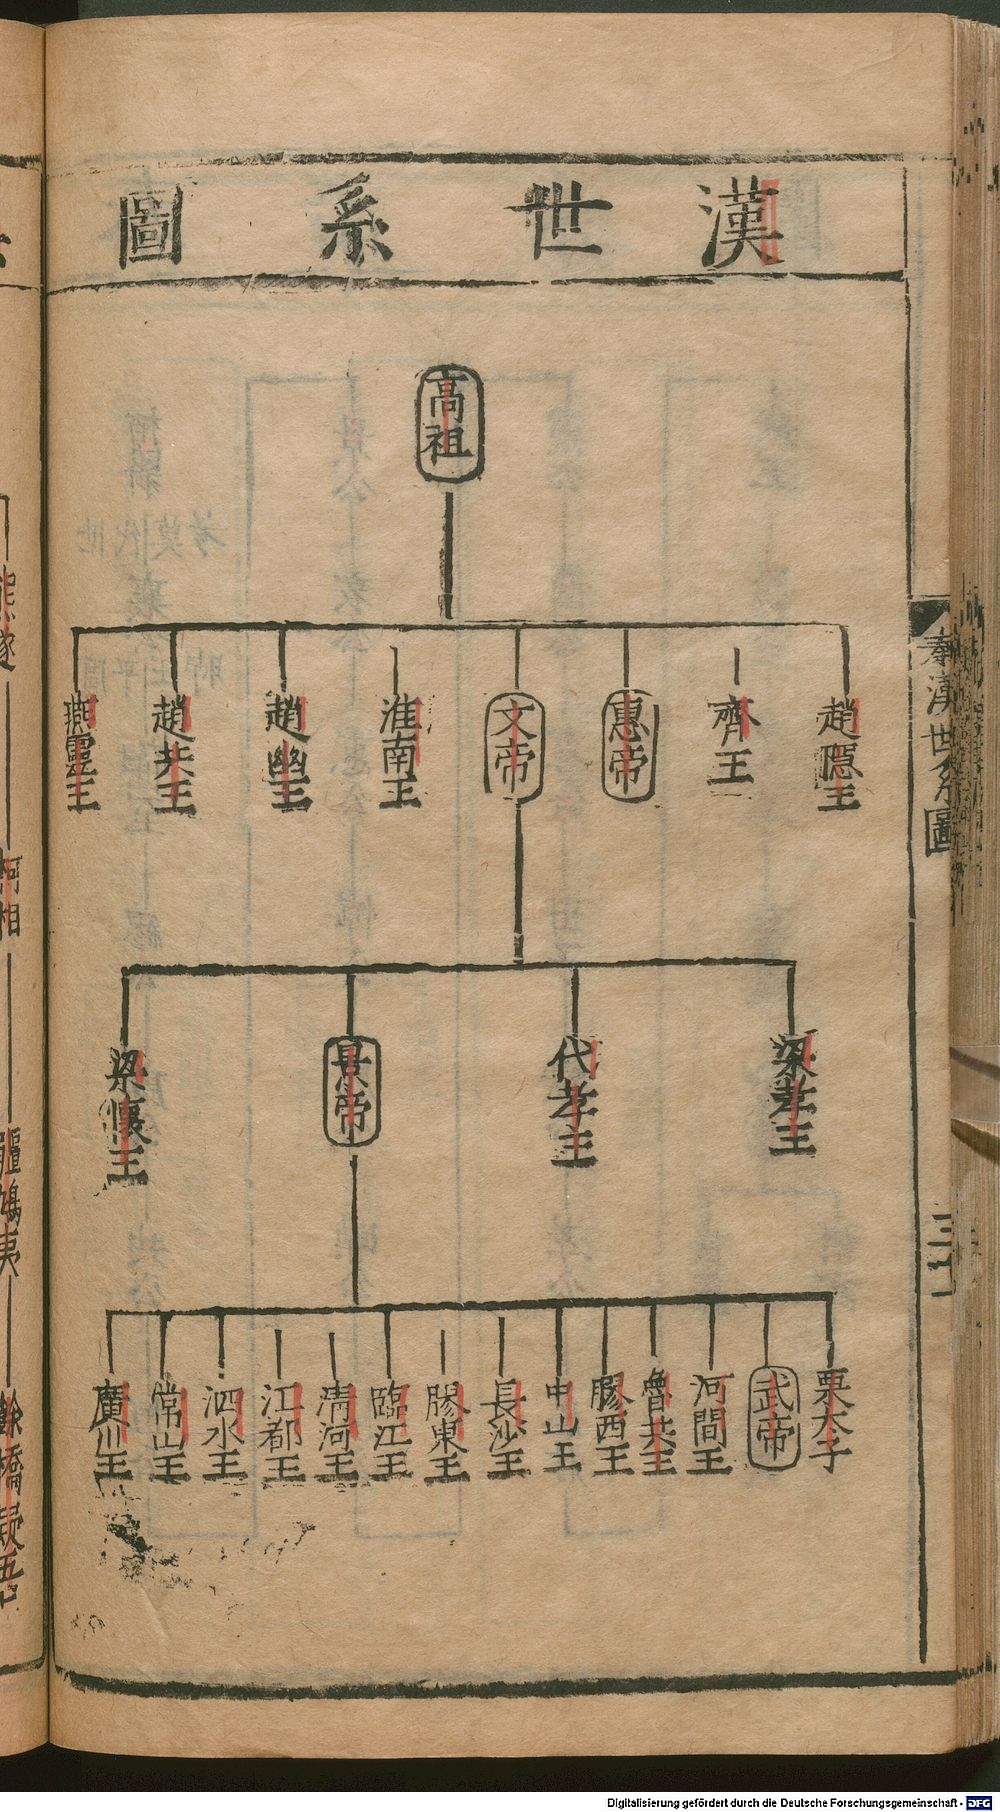 漢世系圖
高祖
趙隱王
齊王
惠帝
文帝
淮南王
趙幽王
趙共王
燕靈王
梁孝王
代孝王
景帝
梁懷王
栗太子
武帝
河間王
魯共王
膠西王
中山王
長沙王
膠東王
臨江王
清河王
江都王
泗水王
常山王
廣川王
秦漢世系圖
柯相
疆鳩夷
餘橋疑吾
Digitalisierung gefördert durch die Deutsche Forschungsgemeinschaft - DFG